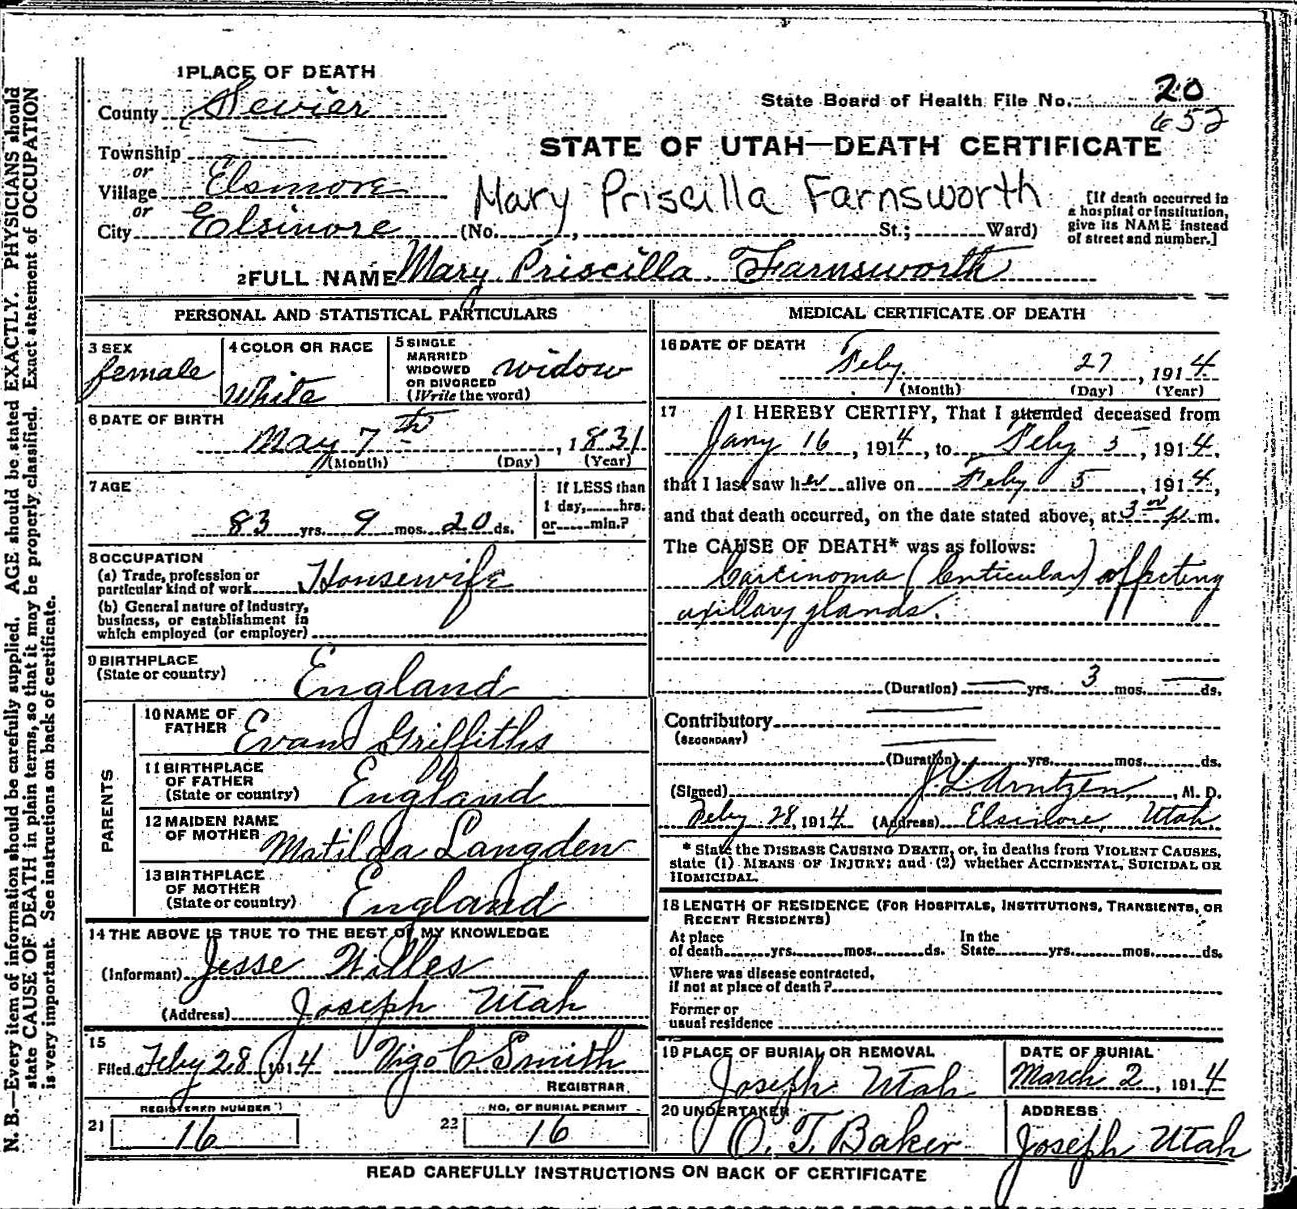 N. B.—Every item of information should be carefully supplied. AGE should be stated EXACTLY. PHYSICIANS should
state CAUSE OF DEATH in plain terms, so that it may be properly classified. Exact statement of OCCUPATION
is very important. See instructions on back of certificate.
1 PLACE OF DEATH
County Sevier
State Board of Health File No. 20
652
Township
or
Village Elsinore
or
City Elsinore
STATE OF UTAH—DEATH CERTIFICATE
Mary Priscilla Farnsworth
(No. , St.; Ward)
[If death occurred in
a hospital or institution,
give its NAME instead
of street and number.]
2 FULL NAME Mary Priscilla Farnsworth
PERSONAL AND STATISTICAL PARTICULARS
3 SEX
female
4 COLOR OR RACE
White
5 SINGLE
MARRIED
WIDOWED
OR DIVORCED
(Write the word)
widow
6 DATE OF BIRTH
May 7th, 1831
(Month) (Day) (Year)
7 AGE
83 yrs. 9 mos. 20 ds.
If LESS than
1 day, hrs.
or min.?
8 OCCUPATION
(a) Trade, profession or
particular kind of work Housewife
(b) General nature of Industry,
business, or establishment in
which employed (or employer)
9 BIRTHPLACE
(State or country) England
PARENTS
10 NAME OF
FATHER Evan Griffiths
11 BIRTHPLACE
OF FATHER
(State or country) England
12 MAIDEN NAME
OF MOTHER Matilda Langden
13 BIRTHPLACE
OF MOTHER
(State or country) England
14 THE ABOVE IS TRUE TO THE BEST OF MY KNOWLEDGE
(Informant) Jesse Willes
(Address) Joseph Utah
15
Filed Feby 28, 1914 Vigo C Smith
REGISTRAR
REGISTERED NUMBER
21 16
NO. OF BURIAL PERMIT
22 16
MEDICAL CERTIFICATE OF DEATH
16 DATE OF DEATH
Feby 27, 1914
(Month) (Day) (Year)
17 I HEREBY CERTIFY, That I attended deceased from
Jany 16, 1914, to Feby 5, 1914,
that I last saw her alive on Feby 5, 1914,
and that death occurred, on the date stated above, at 3 p m.
The CAUSE OF DEATH* was as follows:
Carcinoma (lenticular) affecting
axillary glands.
(Duration) yrs. 3 mos. ds.
Contributory
(SECONDARY)
(Duration) yrs. mos. ds.
(Signed) J. L. Arntzen, M. D.
Feby 28, 1914 (Address) Elsinore, Utah.
* State the DISEASE CAUSING DEATH, or, in deaths from VIOLENT CAUSES,
state (1) MEANS OF INJURY; and (2) whether ACCIDENTAL, SUICIDAL OR
HOMICIDAL.
18 LENGTH OF RESIDENCE (FOR HOSPITALS, INSTITUTIONS, TRANSIENTS, OR
RECENT RESIDENTS)
At place
of death yrs. mos. ds.
In the
State yrs. mos. ds.
Where was disease contracted,
if not at place of death?
Former or
usual residence
19 PLACE OF BURIAL OR REMOVAL
Joseph Utah
DATE OF BURIAL
March 2, 1914
20 UNDERTAKER
O. T. Baker
ADDRESS
Joseph Utah
READ CAREFULLY INSTRUCTIONS ON BACK OF CERTIFICATE